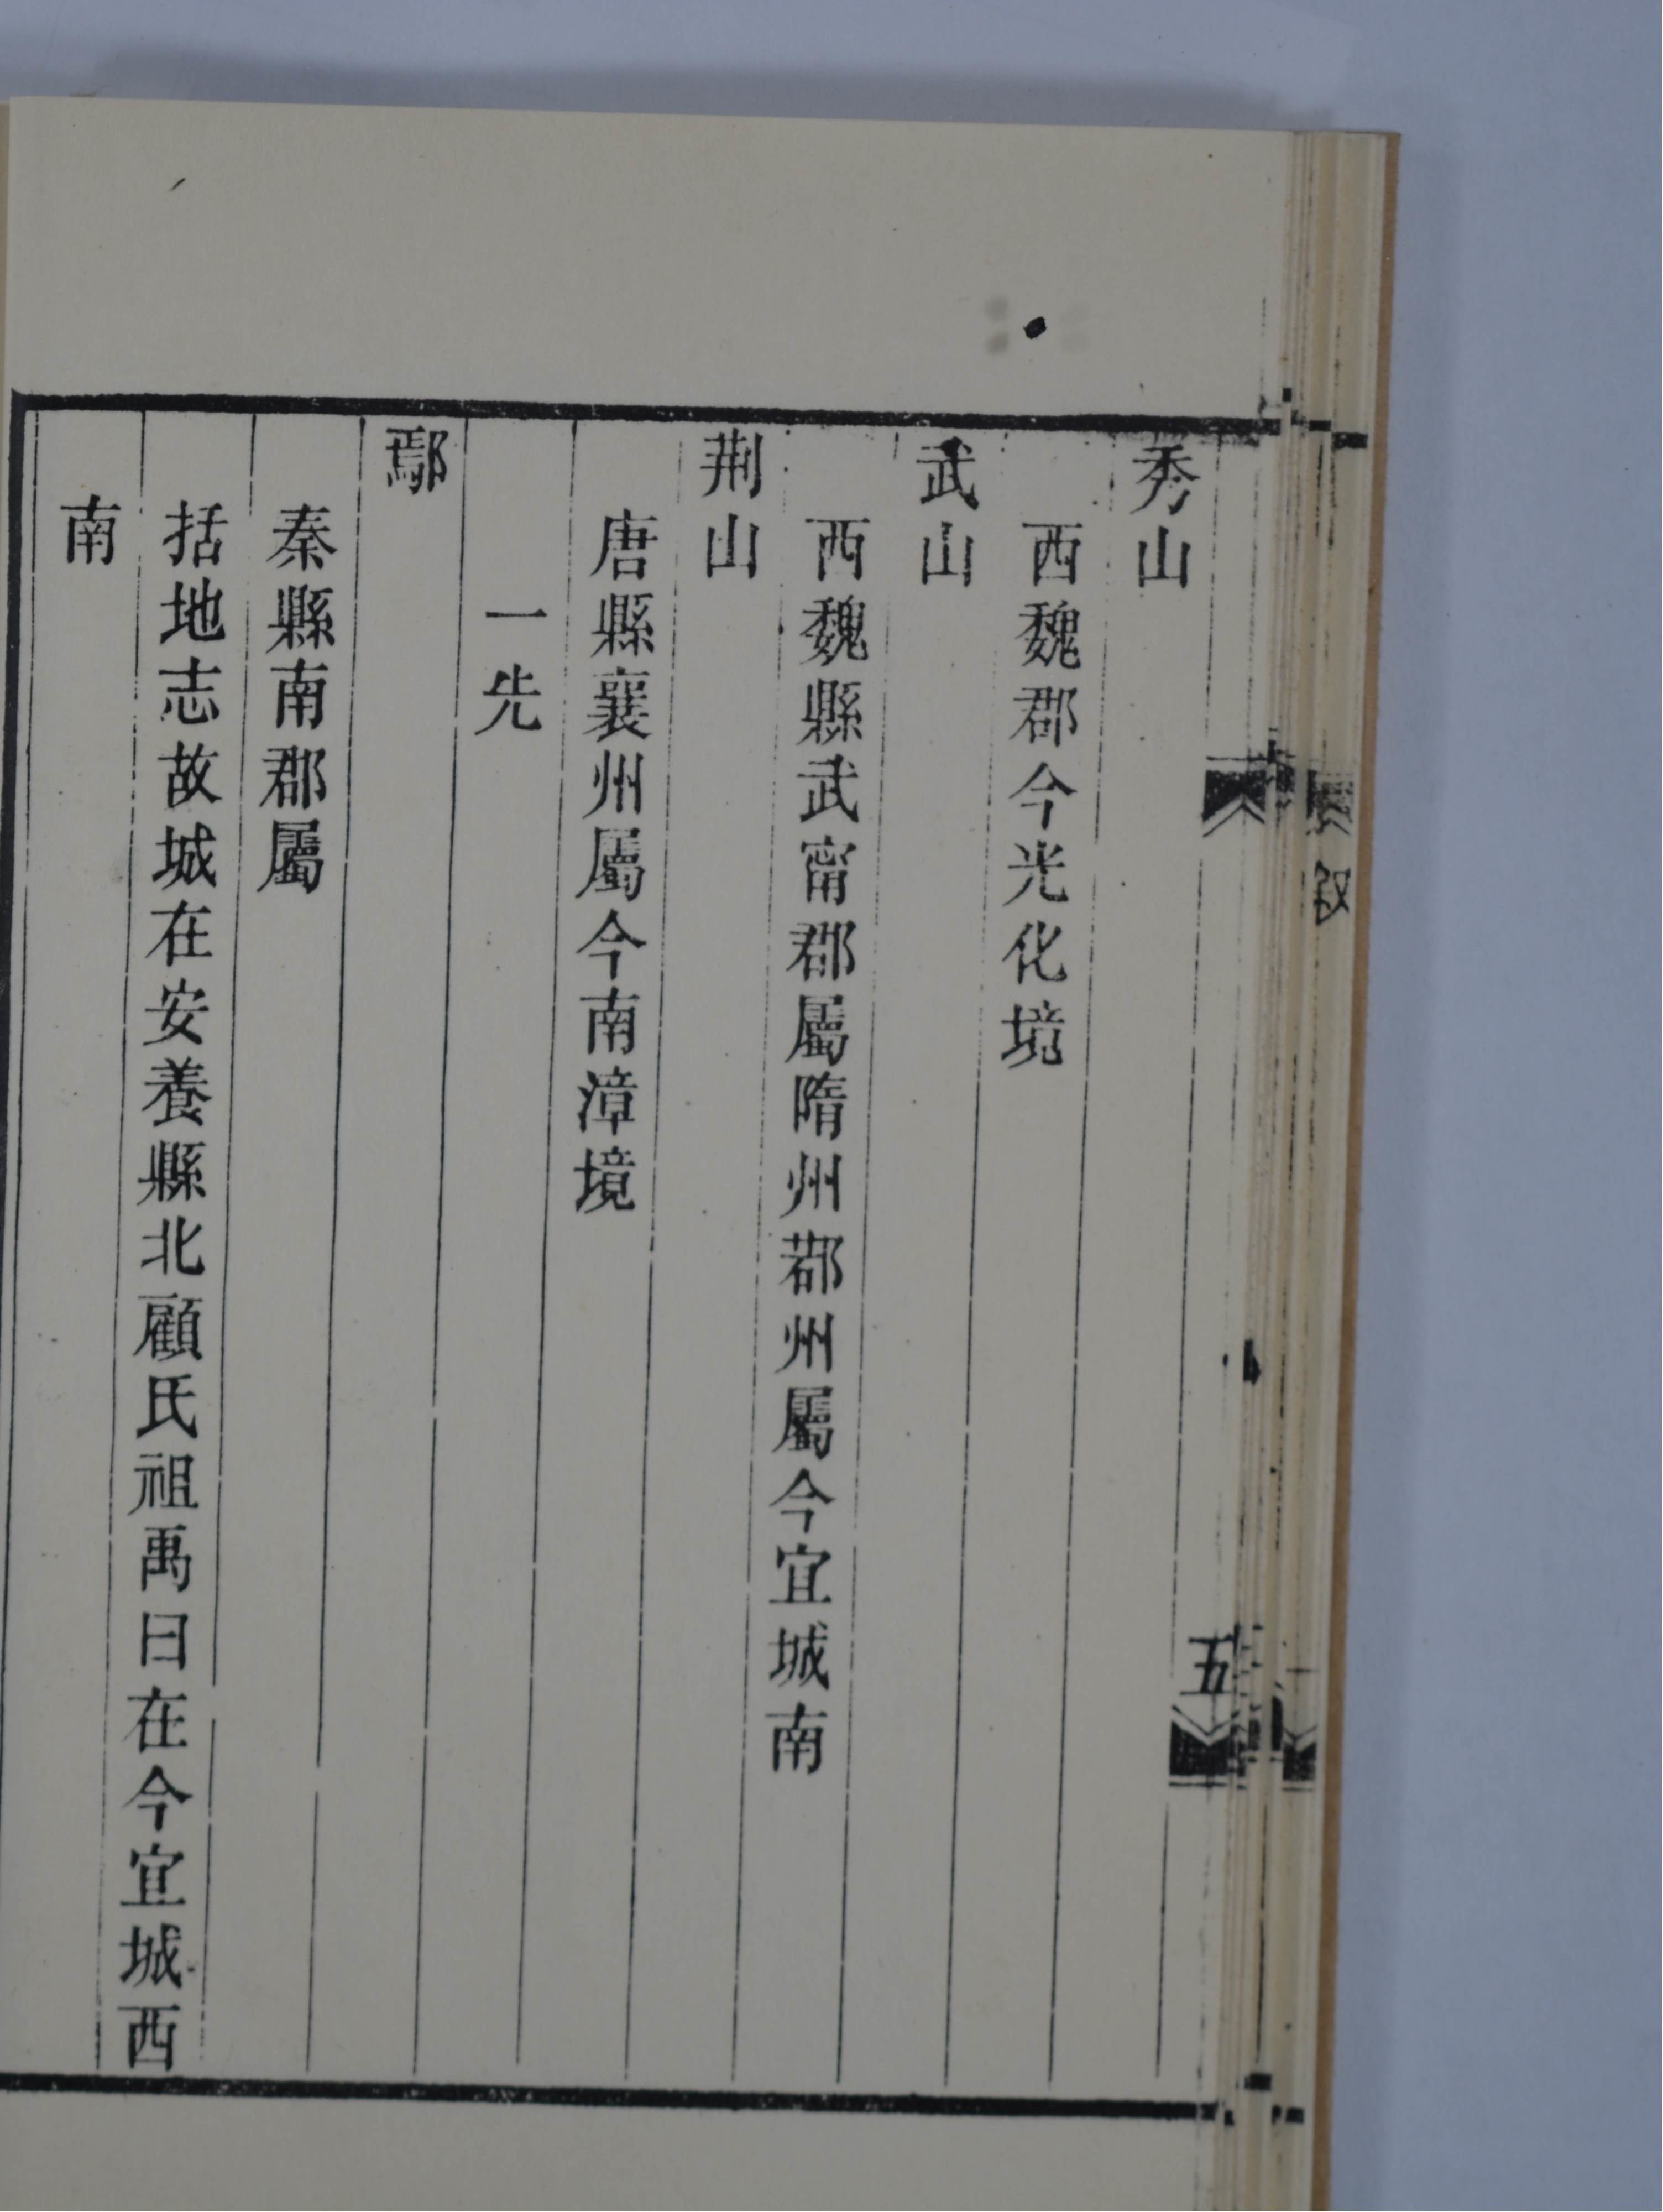 秀山
西魏郡今光化境
武山
西魏縣武甯郡屬隋州鄀州屬今宜城南
荆山
唐縣襄州屬今南漳境
一先
鄢
秦縣南郡屬
括地志故城在安養縣北顧氏祖禹曰在今宜城西
南
五
叙